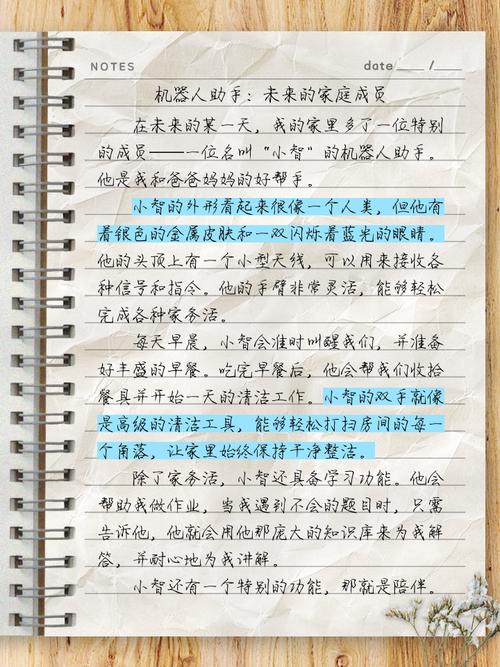 NOTES
date ____ / ___
机器人助手：未来的家庭成员
在未来的某一天，我的家里多了一位特别
的成员——一位名叫“小智”的机器人助手。
他是我和爸爸妈妈的好帮手。
小智的外形看起来很像一个人类，但他有
着银色的金属皮肤和一双闪烁着蓝光的眼睛。
他的头顶上有一个小型天线，可以用来接收各
种信号和指令。他的手臂非常灵活，能够轻松
完成各种家务活。
每天早晨，小智会准时叫醒我们，并准备
好丰盛的早餐。吃完早餐后，他会帮我们收拾
餐具并开始一天的清洁工作。小智的双手就像
是高级的清洁工具，能够轻松打扫房间的每一
个角落，让家里始终保持干净整洁。
除了家务活，小智还具备学习功能。他会
帮助我做作业，当我遇到不会的题目时，只需
告诉他，他就会用他那庞大的知识库来为我解
答，并耐心地为我讲解。
小智还有一个特别的功能，那就是陪伴。